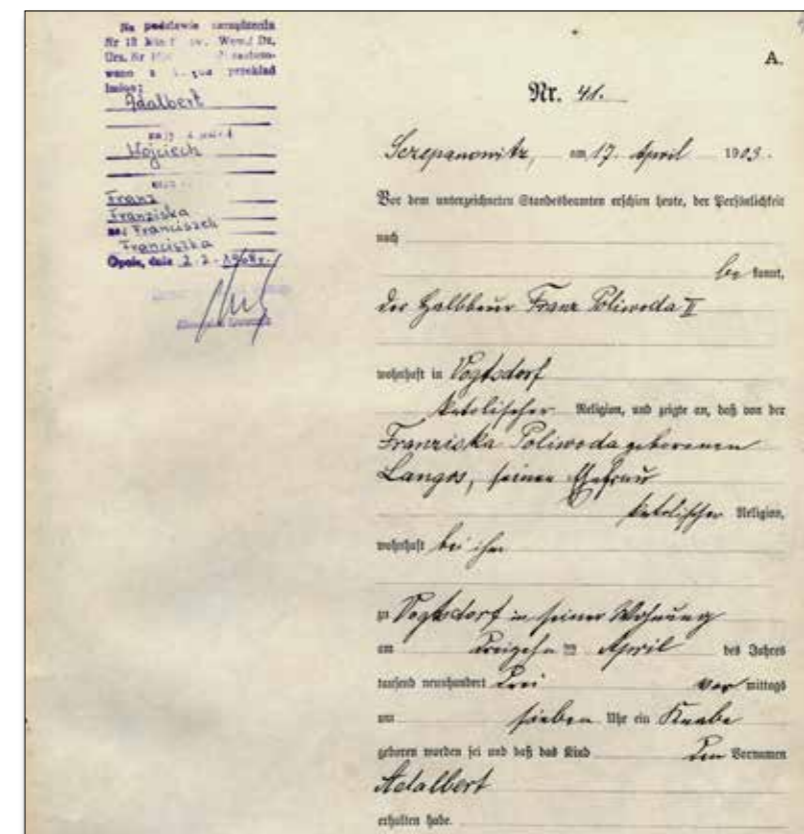 Na podstawie zarządzenia
Nr 18
Urz. Nr
przekład
imion:
Adalbert
Wojciech
Franz
Franziska
na: Franciszek
Franciszka
Opole, dnia 2.2.1968r.
A.
Nr. 41.
Sczepanowitz, am 17. April 1903.
Vor dem unterzeichneten Standesbeamten erschien heute, der Persönlichkeit
nach
be kannt,
der Halbbauer Franz Poliwoda II
wohnhaft in Vogtsdorf
katolischer Religion, und zeigte an, daß von der
Franziska Poliwoda geborenen
Langos, seiner Ehefrau
katolischer Religion,
wohnhaft bei ihm
zu Vogtsdorf in seiner Wohnung
am dreizehn ten April des Jahres
tausend neunhundert drei vor mittags
um sieben Uhr ein Knabe
geboren worden sei und daß das Kind den Vornamen
Adalbert
erhalten habe.